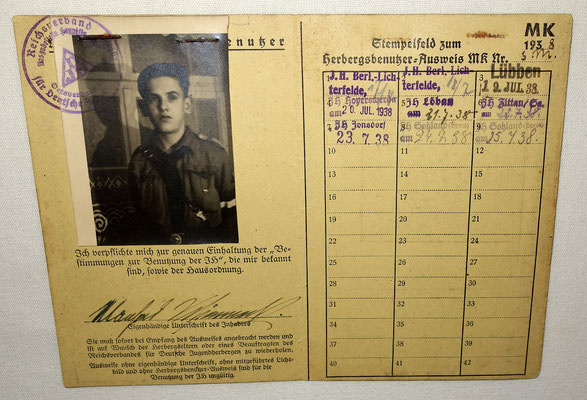 Reichsverband
für Deutsche
Benutzer
Ich verpflichte mich zur genauen Einhaltung der „Be-
stimmungen zur Benutzung der JH", die mir bekannt
sind, sowie der Hausordnung.
Eigenhändige Unterschrift des Inhabers
Sie muß sofort bei Empfang des Ausweises angebracht werden und
ist auf Wunsch der Herbergseltern oder eines Beauftragten des
Reichsverbandes für Deutsche Jugendherbergen zu wiederholen.
Ausweise ohne eigenhändige Unterschrift, ohne mitgeführtes Licht-
bild und ohne Herbergsbenutzer-Ausweis sind für die
Benutzung der JH ungültig.
MK
1938
Stempelfeld zum
Herbergsbenutzer-Ausweis MK Nr.
J.H. Berl.-Lich-
terfelde,
J.H. Berl.-Lich-
terfelde,
3
Lübben
19. JUL. 38
JH Hoyerswerda
am 20. JUL. 1938
JH Löbau
am 21.7.38
JH Zittau/Sa.
JH Jonsdorf
23. 7. 38
JH Sohland
am 24.7.38
JH Sohland
am 25.7.38.
10 11 12
13 14 15
16 17 18
19 20 21
22 23 24
25 26 27
28 29 30
31 32 33
34 35 36
37 38 39
40 41 42